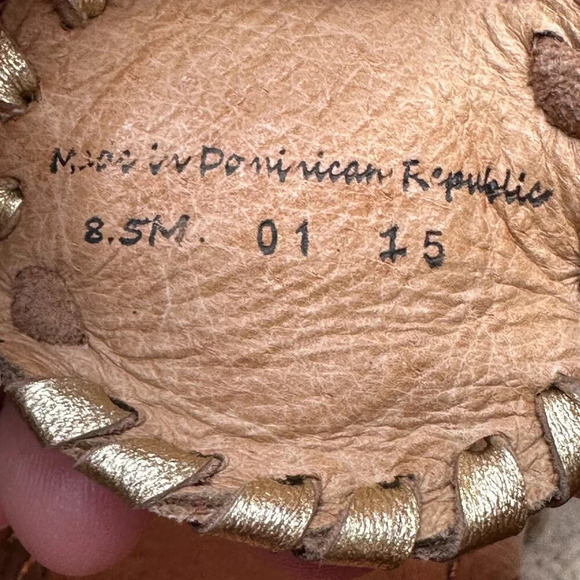 Made in Dominican Republic
8.5M. 01 15